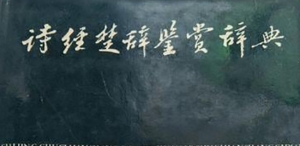 诗经楚辞鉴赏辞典